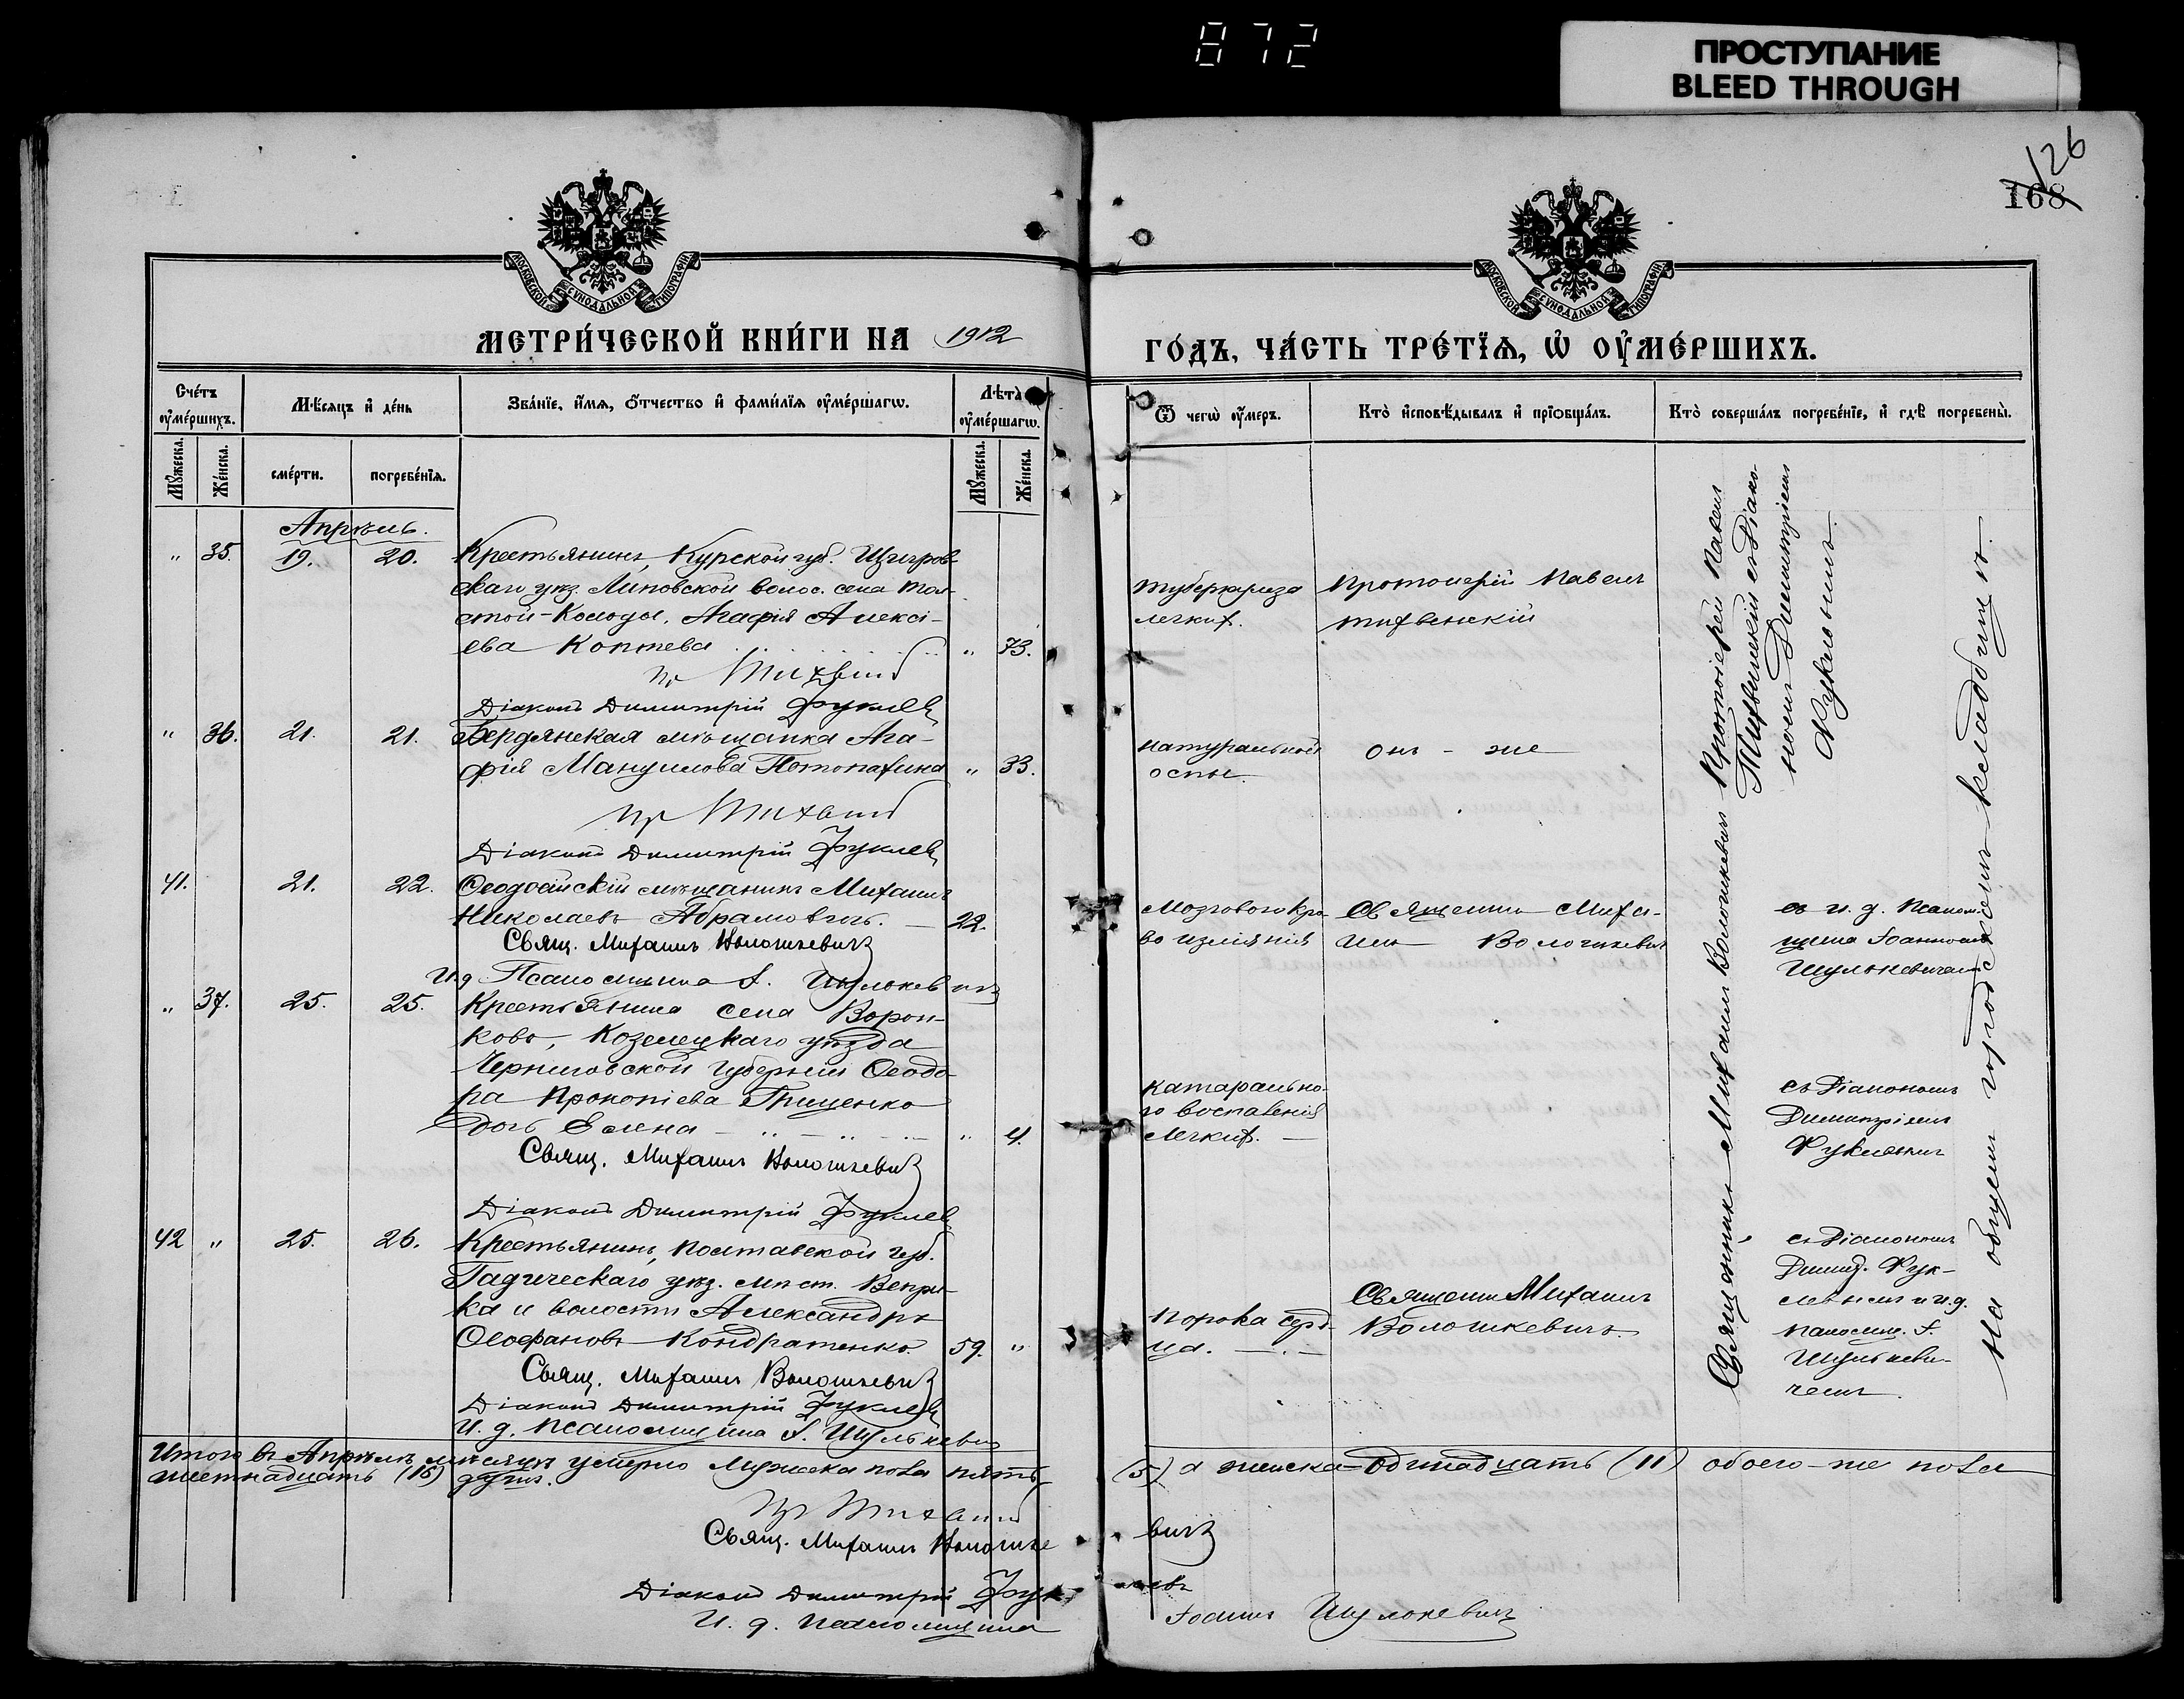 872
ПРОСТУПАНИЕ
BLEED THROUGH
126
168
МОСКОВСКОЙ СѴНОДАЛЬНОЙ ТИПОГРАФІИ
МОСКОВСКОЙ СѴНОДАЛЬНОЙ ТИПОГРАФІИ
МЕТРИ́ЧЕСКОЙ КНИ́ГИ НА 1912
ГО́ДЪ, ЧА́СТЬ ТРЕ́ТЇѦ, Ѡ҆ ОУ҆МЕ́РШИХЪ.
Сче́тъ оу҆ме́ршихъ.
Мꙋ́жеска.
Же́нска.
Мѣ́сяцъ и҆ де́нь
сме́рти.
погребе́нїѧ.
Зва́нїе, и҆́мѧ, ѻ҆́тчество и҆ фами́лїѧ оу҆ме́ршагѡ.
Лѣ́та оу҆ме́ршагѡ.
Мꙋ́жеска.
Же́нска.
Ѿ чегѡ̀ оу҆́меръ.
Кто̀ и҆сповѣ́дывалъ и҆ прїѡбща́лъ.
Кто̀ соверша́лъ погребе́нїе, и҆ гдѣ̀ погребены̀.
Апрѣль.
" 35. 19. 20. Крестьянинъ, Курской губ. Щигров-
скаго уѣз. Липовской волос. села Тол-
стой-Колоды, Агафія Алексі-
ева Коптева " 73.
пр Тихвинс
Діаконъ Димитрій Фуклевъ
туберкулеза
легких.
Протоиерій Павелъ
Тихвенскій
" 36. 21. 21. Бердянская мѣщанка Ага-
фія Мануилова Потопахина " 33.
пр Тихвинс
Діаконъ Димитрій Фуклевъ
натуральной
оспы.
Онъ - же
41. 21. 22. Ѳеодосійскій мѣщанинъ Михаилъ
Николаевъ Абрамовичъ. — 22.
Свящ. Михаилъ Волошкевичъ
И.д. Псаломщика І. Шулькевичъ
Мозгового кро-
во излiянія
Священник Миха-
илъ Волошкевичъ
съ и. д. Псаломщ-
щика Іоанномъ
Шулькевичемъ
" 37. 25. 25. Крестьянина села Ворон-
ковъ, Козелецкаго уѣзда
Черниговской губерніи Ѳеодо-
ра Прокопіева Грищенко
дочь Елена " 4.
Свящ. Михаилъ Волошкевичъ
Діаконъ Димитрій Фуклевъ
катарально-
го воспаленія
легких. —
съ Діакономъ
Димитріемъ
Фуклевымъ
42 " 25. 26. Крестьянинъ, Полтавской губ.
Гадическаго уѣз. мѣст. Вепри-
ка и волости Александръ
Ѳеофановъ Кондратенко 59. "
Свящ. Михаилъ Волошкевичъ
Діаконъ Димитрій Фуклевъ
И. д. псаломщика І. Шулькевичъ
порока серд-
ца.
Священник Михаилъ
Волошкевичъ.
съ Діакономъ
Димит. Фук-
левымъ и и.д.
псаломщ. І.
Шулькеви-
чемъ.
Протоіерей Павелъ
Тихвинскій съ Діако-
номъ Димитріемъ
Фуклевымъ.
Священникъ Михаилъ Волошкевичъ
На общемъ городскомъ кладбищѣ.
Итого въ Апрѣлѣ мѣсяцѣ умерло мужеска пола пять (5) а женска - одинадцать (11) обоего-же пола
шестнадцать (16) душъ.
пр Тихвинс
Свящ. Михаилъ Волошке вичъ
Діаконъ Димитрій Фук левъ
И. д. псаломщика Іоаннъ Шулькевичъ